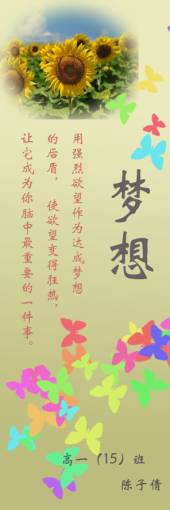 梦想
用强烈欲望作为达成梦想
的后盾，使欲望变得狂热，
让它成为你脑中最重要的一件事。
高一（15）班
陈子倩